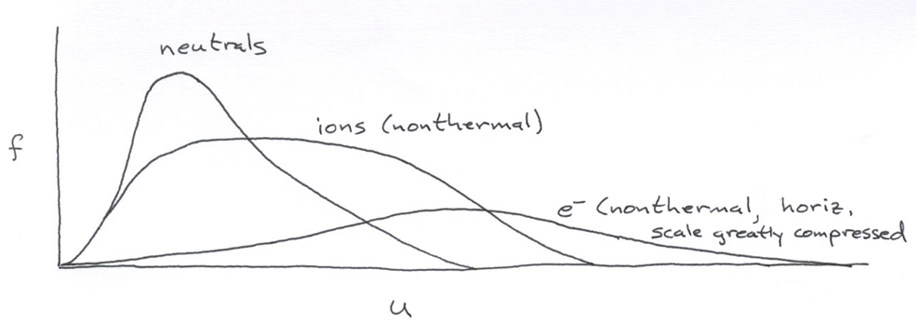 neutrals
ions (nonthermal)
f
e⁻ (nonthermal, horiz.
scale greatly compressed
u